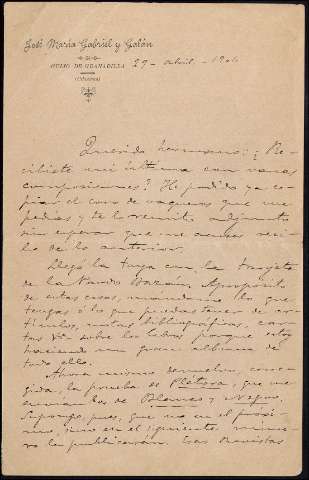 José María Gabriel y Galán
GUIJO DE GRANADILLA
(Cáceres)
29-abril-1904
Querido hermano: ¿Re-
cibiste mi última con varias
composiciones? He podido ya co-
piar el coro de vaqueros que me
pedías y te lo remito adjunto
sin esperar que me acuses reci-
bo de lo anterior.
Llegó la tuya con la tarjeta
de la Pardo Bazán. A propósito
de estas cosas, mándame lo que
tengas ó lo que puedas tener de ar-
tículos, notas bibliográficas, car-
tas &ª sobre los libros porque estoy
haciendo un gran album de
todo ello.
Ahora mismo devuelvo corre-
gida la prueba de Plétora, que me
envían los de Blanco y Negro.
Supongo, pues, que no en el próxi-
mo, sino en el siguiente núme-
ro la publicarán. Esas Revistas